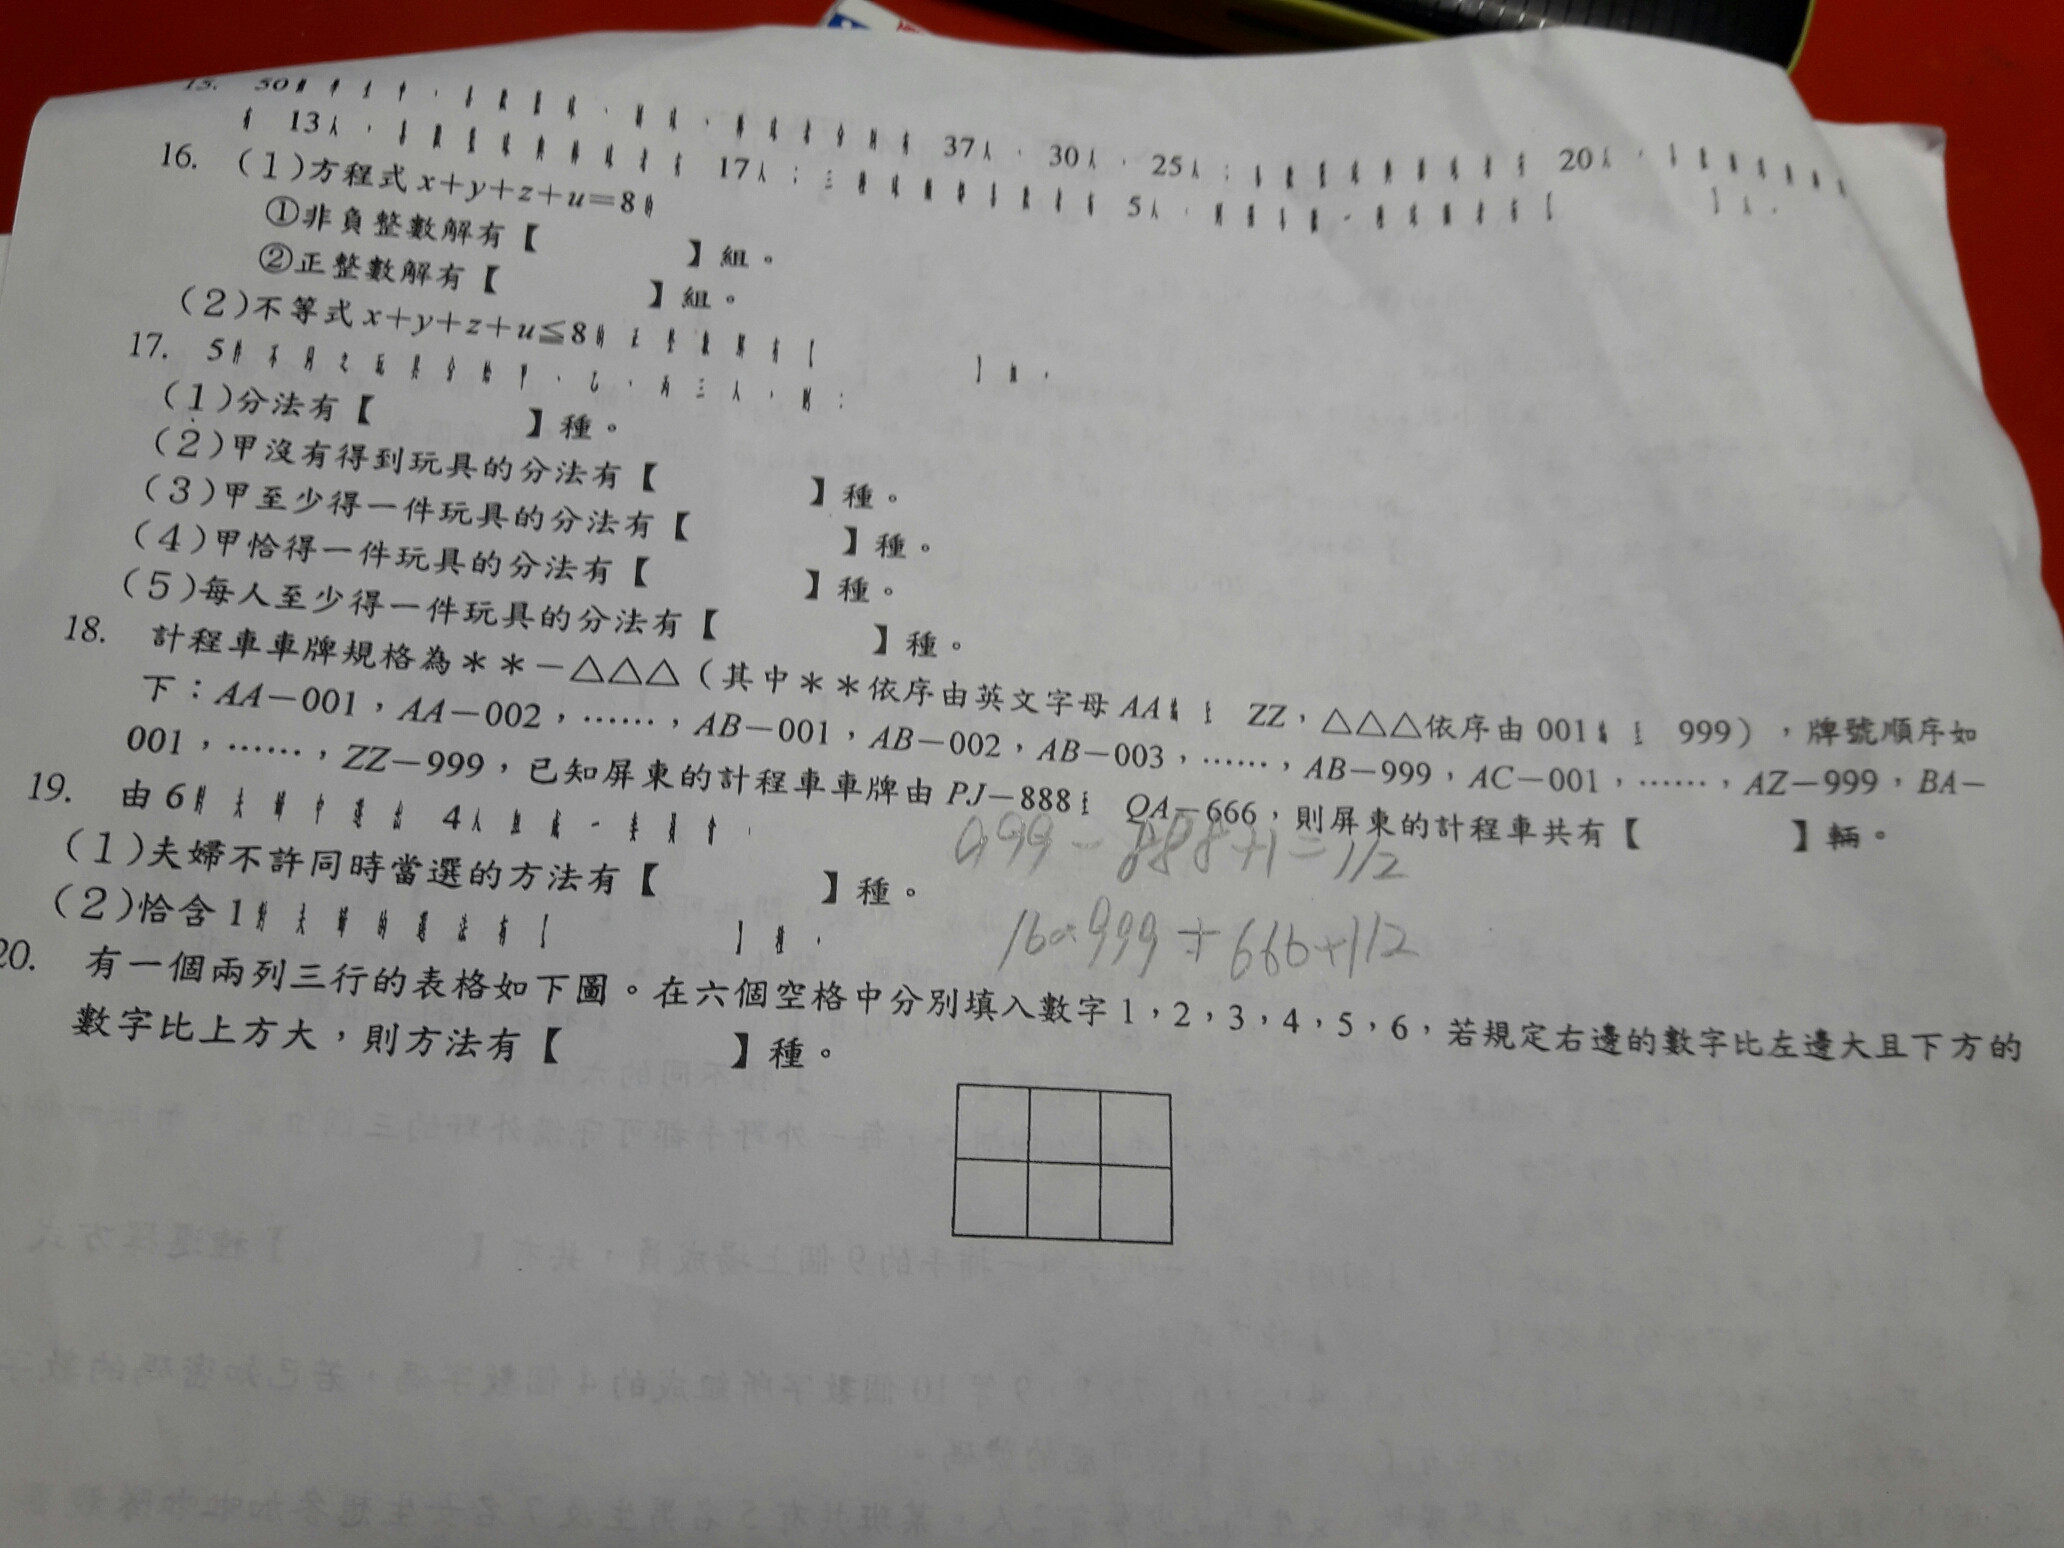 15. 50
有 13人，喜歡籃球與棒球者有 17人；三種球類都喜歡者有 5人，
37人、30人、25人；喜歡籃球與 20人，
16. (1)方程式 x+y+z+u=8的
①非負整數解有【　】組。
②正整數解有【　】組。
(2)不等式 x+y+z+u≦8的正整數解有【　】組。
17. 5件不同之玩具分給甲、乙、丙三人，則：
(1)分法有【　】種。
(2)甲沒有得到玩具的分法有【　】種。
(3)甲至少得一件玩具的分法有【　】種。
(4)甲恰得一件玩具的分法有【　】種。
(5)每人至少得一件玩具的分法有【　】種。
18. 計程車車牌規格為＊＊－△△△（其中＊＊依序由英文字母 AA編至 ZZ，△△△依序由 001編至 999），牌號順序如
下：AA－001，AA－002，……，AB－001，AB－002，AB－003，……，AB－999，AC－001，……，AZ－999，BA－
001，……，ZZ－999，已知屏東的計程車車牌由 PJ－888至 QA－666，則屏東的計程車共有【　】輛。
999-888+1=112
16×999+666+112
19. 由 6對夫婦中選出 4人組成一委員會，
(1)夫婦不許同時當選的方法有【　】種。
(2)恰含 1對夫婦的選法有【　】種。
20. 有一個兩列三行的表格如下圖。在六個空格中分別填入數字 1，2，3，4，5，6，若規定右邊的數字比左邊大且下方的
數字比上方大，則方法有【　】種。